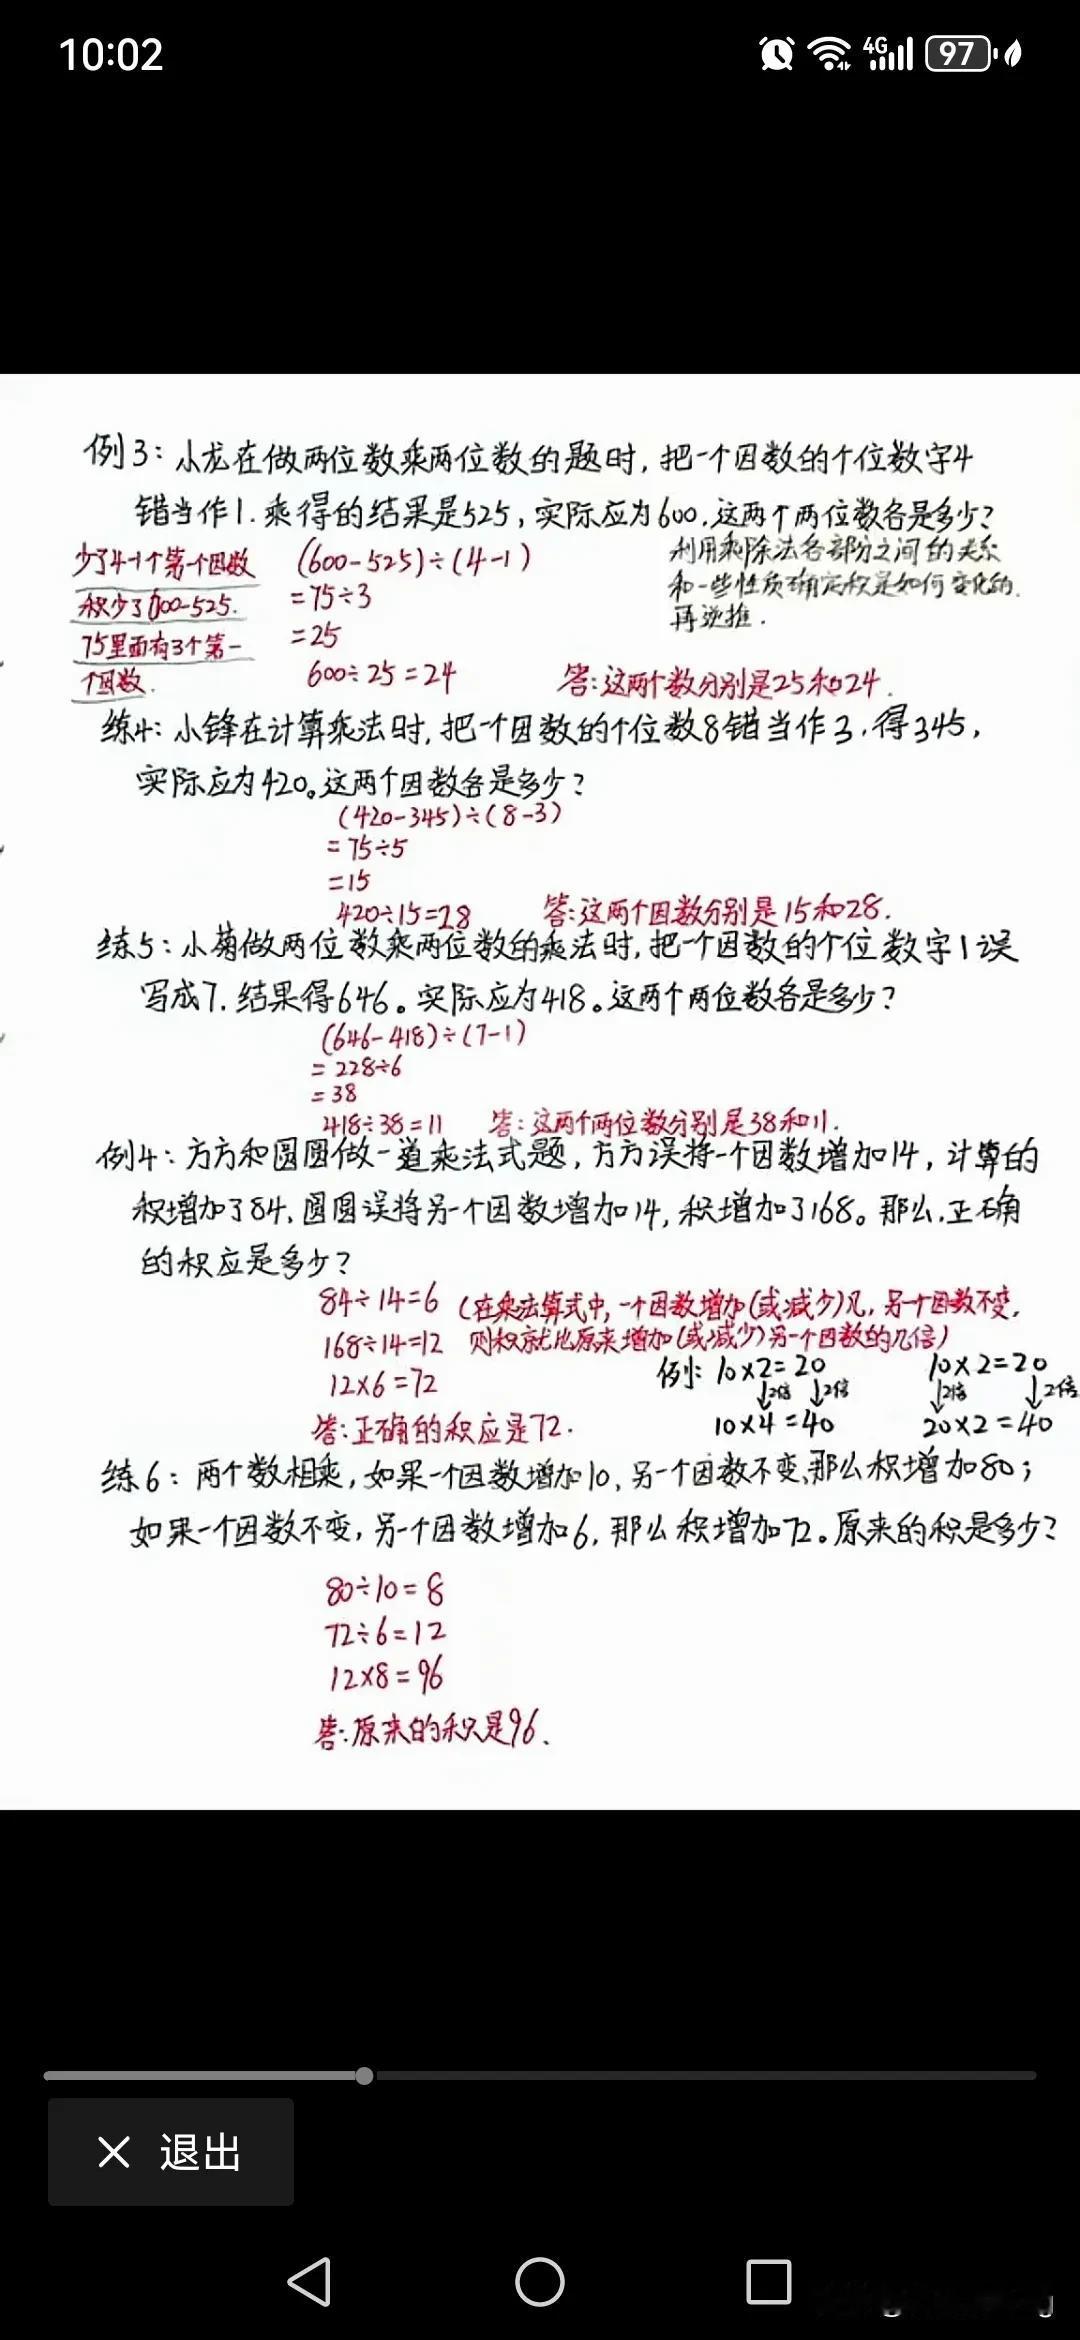 10:02
4G 97
例3:小龙在做两位数乘两位数的题时,把一个因数的个位数字4
错当作1.乘得的结果是525,实际应为600.这两个两位数各是多少?
少了4-1个第一个因数
积少了600-525.
75里面有3个第一
个因数.
(600-525)÷(4-1)
=75÷3
=25
600÷25=24
利用乘除法各部分之间的关系
和一些性质确定积是如何变化的.
再逆推.
答:这两个数分别是25和24.
练4:小锋在计算乘法时,把一个因数的个位数8错当作3.得345,
实际应为420。这两个因数各是多少?
(420-345)÷(8-3)
=75÷5
=15
420÷15=28 答:这两个因数分别是15和28.
练5:小菊做两位数乘两位数的乘法时,把一个因数的个位数字1误
写成7.结果得646。实际应为418。这两个两位数各是多少?
(646-418)÷(7-1)
=228÷6
=38
418÷38=11 答:这两个两位数分别是38和11.
例4:方方和圆圆做一道乘法式题,方方误将一个因数增加14,计算的
积增加了84、圆圆误将另一个因数增加14,积增加了168。那么,正确
的积应是多少?
84÷14=6 (在乘法算式中,一个因数增加(或减少)几,另一个因数不变,
168÷14=12 则积就比原来增加(或减少)另一个因数的几倍)
12×6=72
答:正确的积应是72.
例:10×2=20
↓2倍 ↓2倍
10×4=40
10×2=20
↓2倍 ↓2倍
20×2=40
练6:两个数相乘,如果一个因数增加10,另一个因数不变、那么积增加80;
如果一个因数不变,另一个因数增加6,那么积增加72。原来的积是多少?
80÷10=8
72÷6=12
12×8=96
答:原来的积是96、
退出